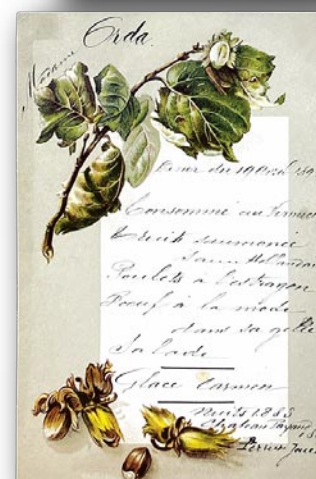 Madame Orda.
Diner du 19 Avril 189
Consommé au
Truite saumonée
Sauce Hollandai
Poulets à l'estragon
Boeuf à la mode
dans sa gelée
Salade
Glace Carmen
Nuits 1885
Chateau
Perrier Jouet